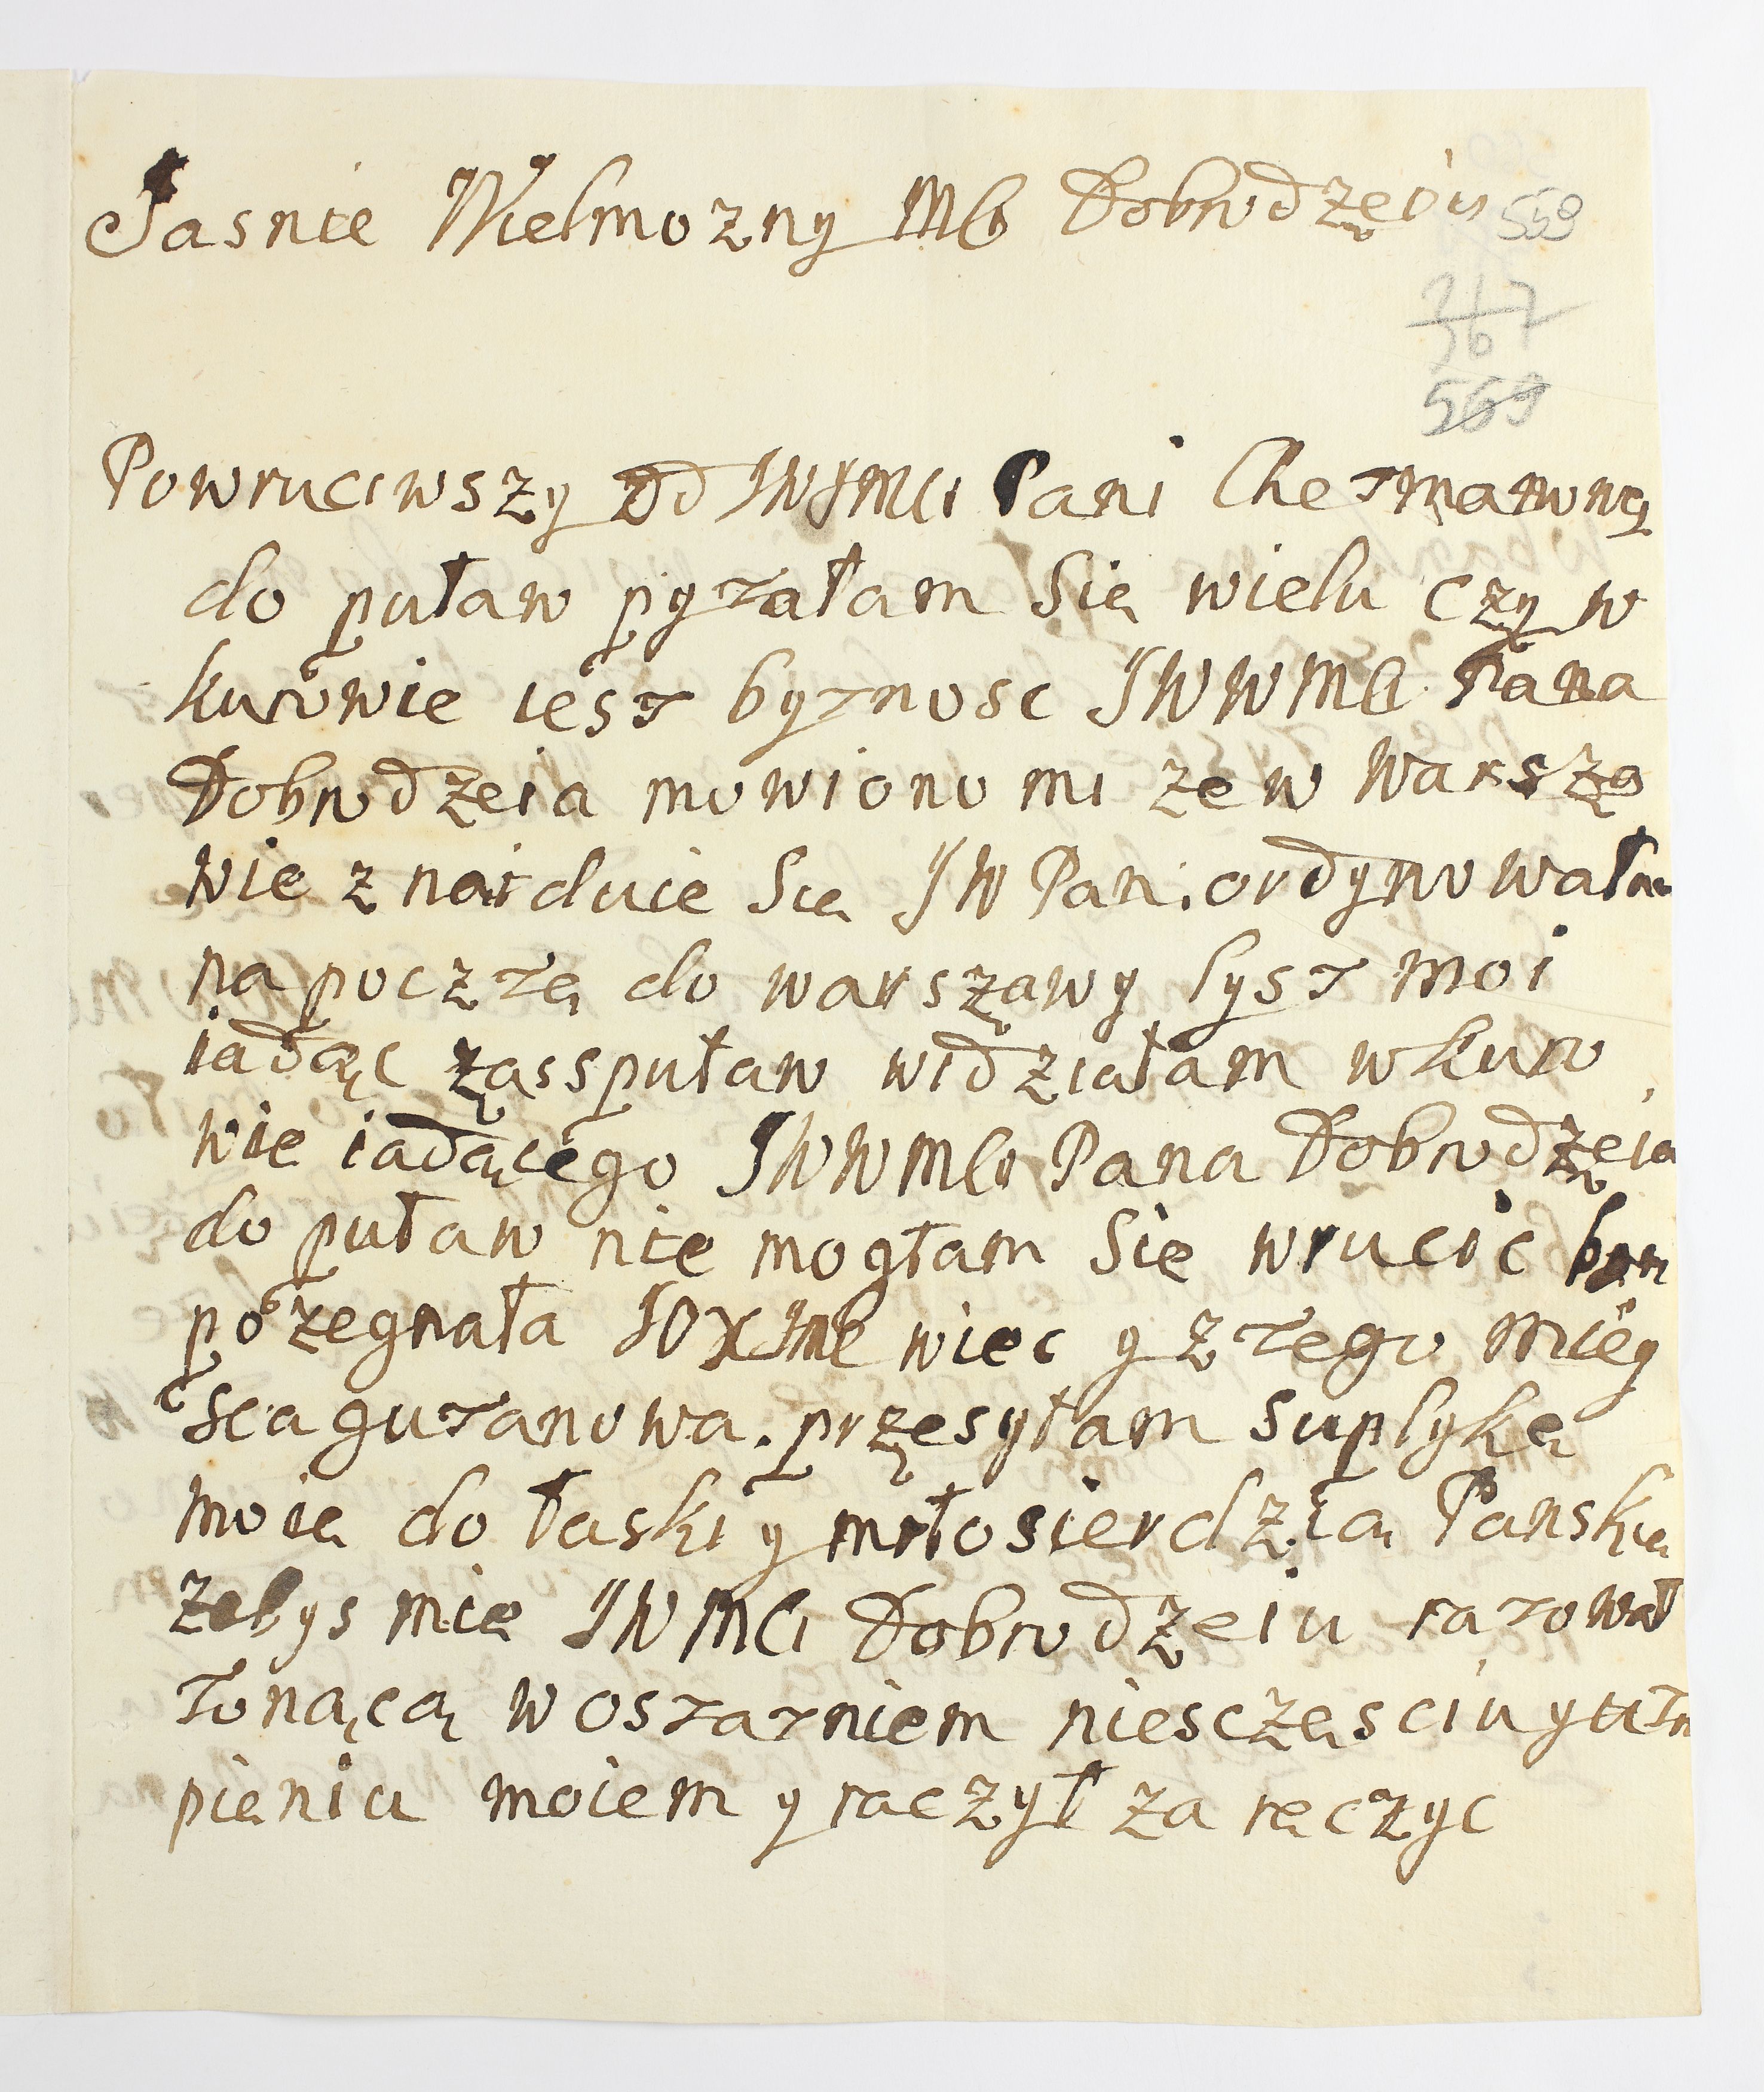 Jasnie Wielmozny Mci Dobrodzeiu 559
367
569
Powruciwszy od JWJMci Pani Chetmanowy
do puław pytałam Sie wielu czy w
kurowie iest bytnosc JWWMCi Pana
Dobrodzeia mowiono mi ze w Warsza
wie znaiduie Sie JW Pan. ordynowałam
na pocztę do warszawy lyst moi
iadąc zasspuław widziałam wkuro
wie iadącego JWWMCi Pana Dobrodzeia
do puław nie mogłam Sie wrucic bom
pożegnała JOXJMC wiec y z tego miey
sca gutanowa. przesyłam suplykę
moię do łaski y miłosierdzia Panskie
zebys mie JWMCi Dobrodzeiu ratował
tonącą w ostatniem niesczęsciu y utra
pieniu moiem y raczył za ręczyc